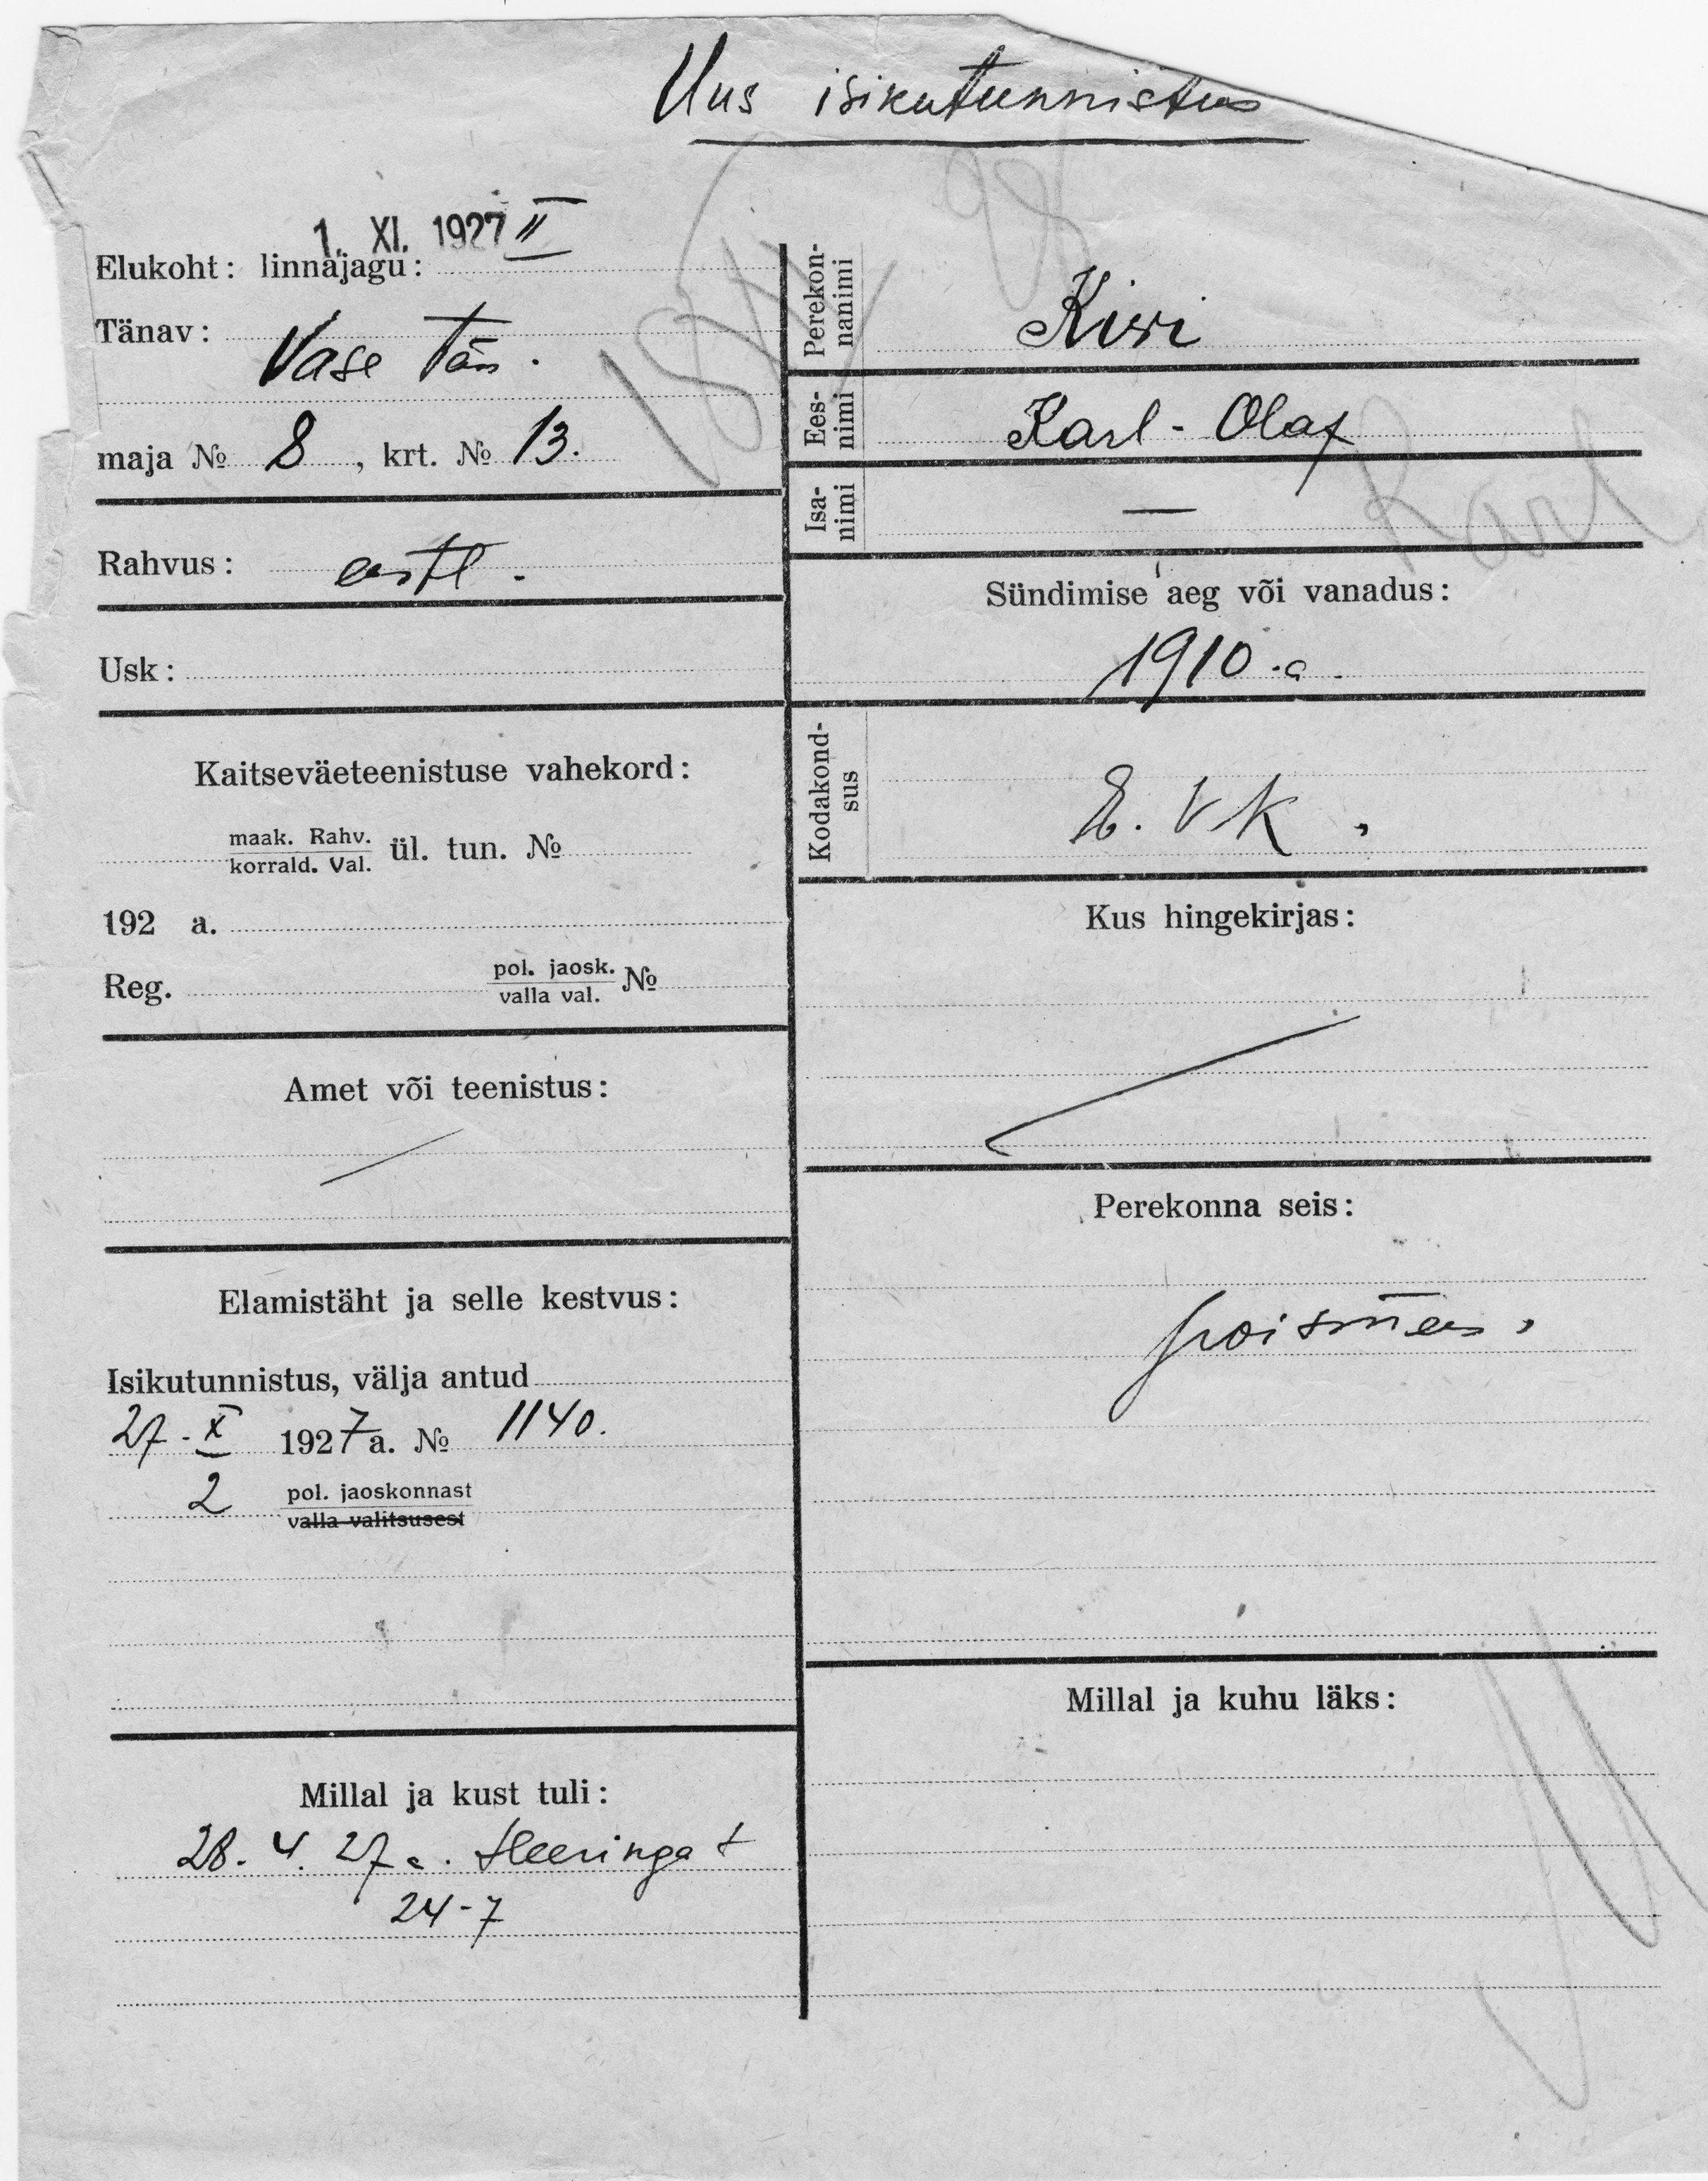 Uus isikutunnistus
1. XI. 1927
Elukoht: linnajagu: II
Tänav: Vase tän.
maja № 8, krt. № 13.
Rahvus: eestl.
Usk:
Kaitseväeteenistuse vahekord:
maak. Rahv.
korrald. Val. ül. tun. №
192 a.
Reg. pol. jaosk.
valla val. №
Amet või teenistus:
Elamistäht ja selle kestvus:
Isikutunnistus, välja antud
27. X 1927 a. № 1140.
2 pol. jaoskonnast
valla valitsusest
Millal ja kust tuli:
28. 4. 27 a. Heeringa t
24-7
Perekon-
nanimi
Kiwi
Ees-
nimi
Karl-Olaf
Isa-
nimi
—
Karl
Sündimise aeg või vanadus:
1910.a.
Kodakond-
sus
E. V K.
Kus hingekirjas:
Perekonna seis:
poismees.
Millal ja kuhu läks: